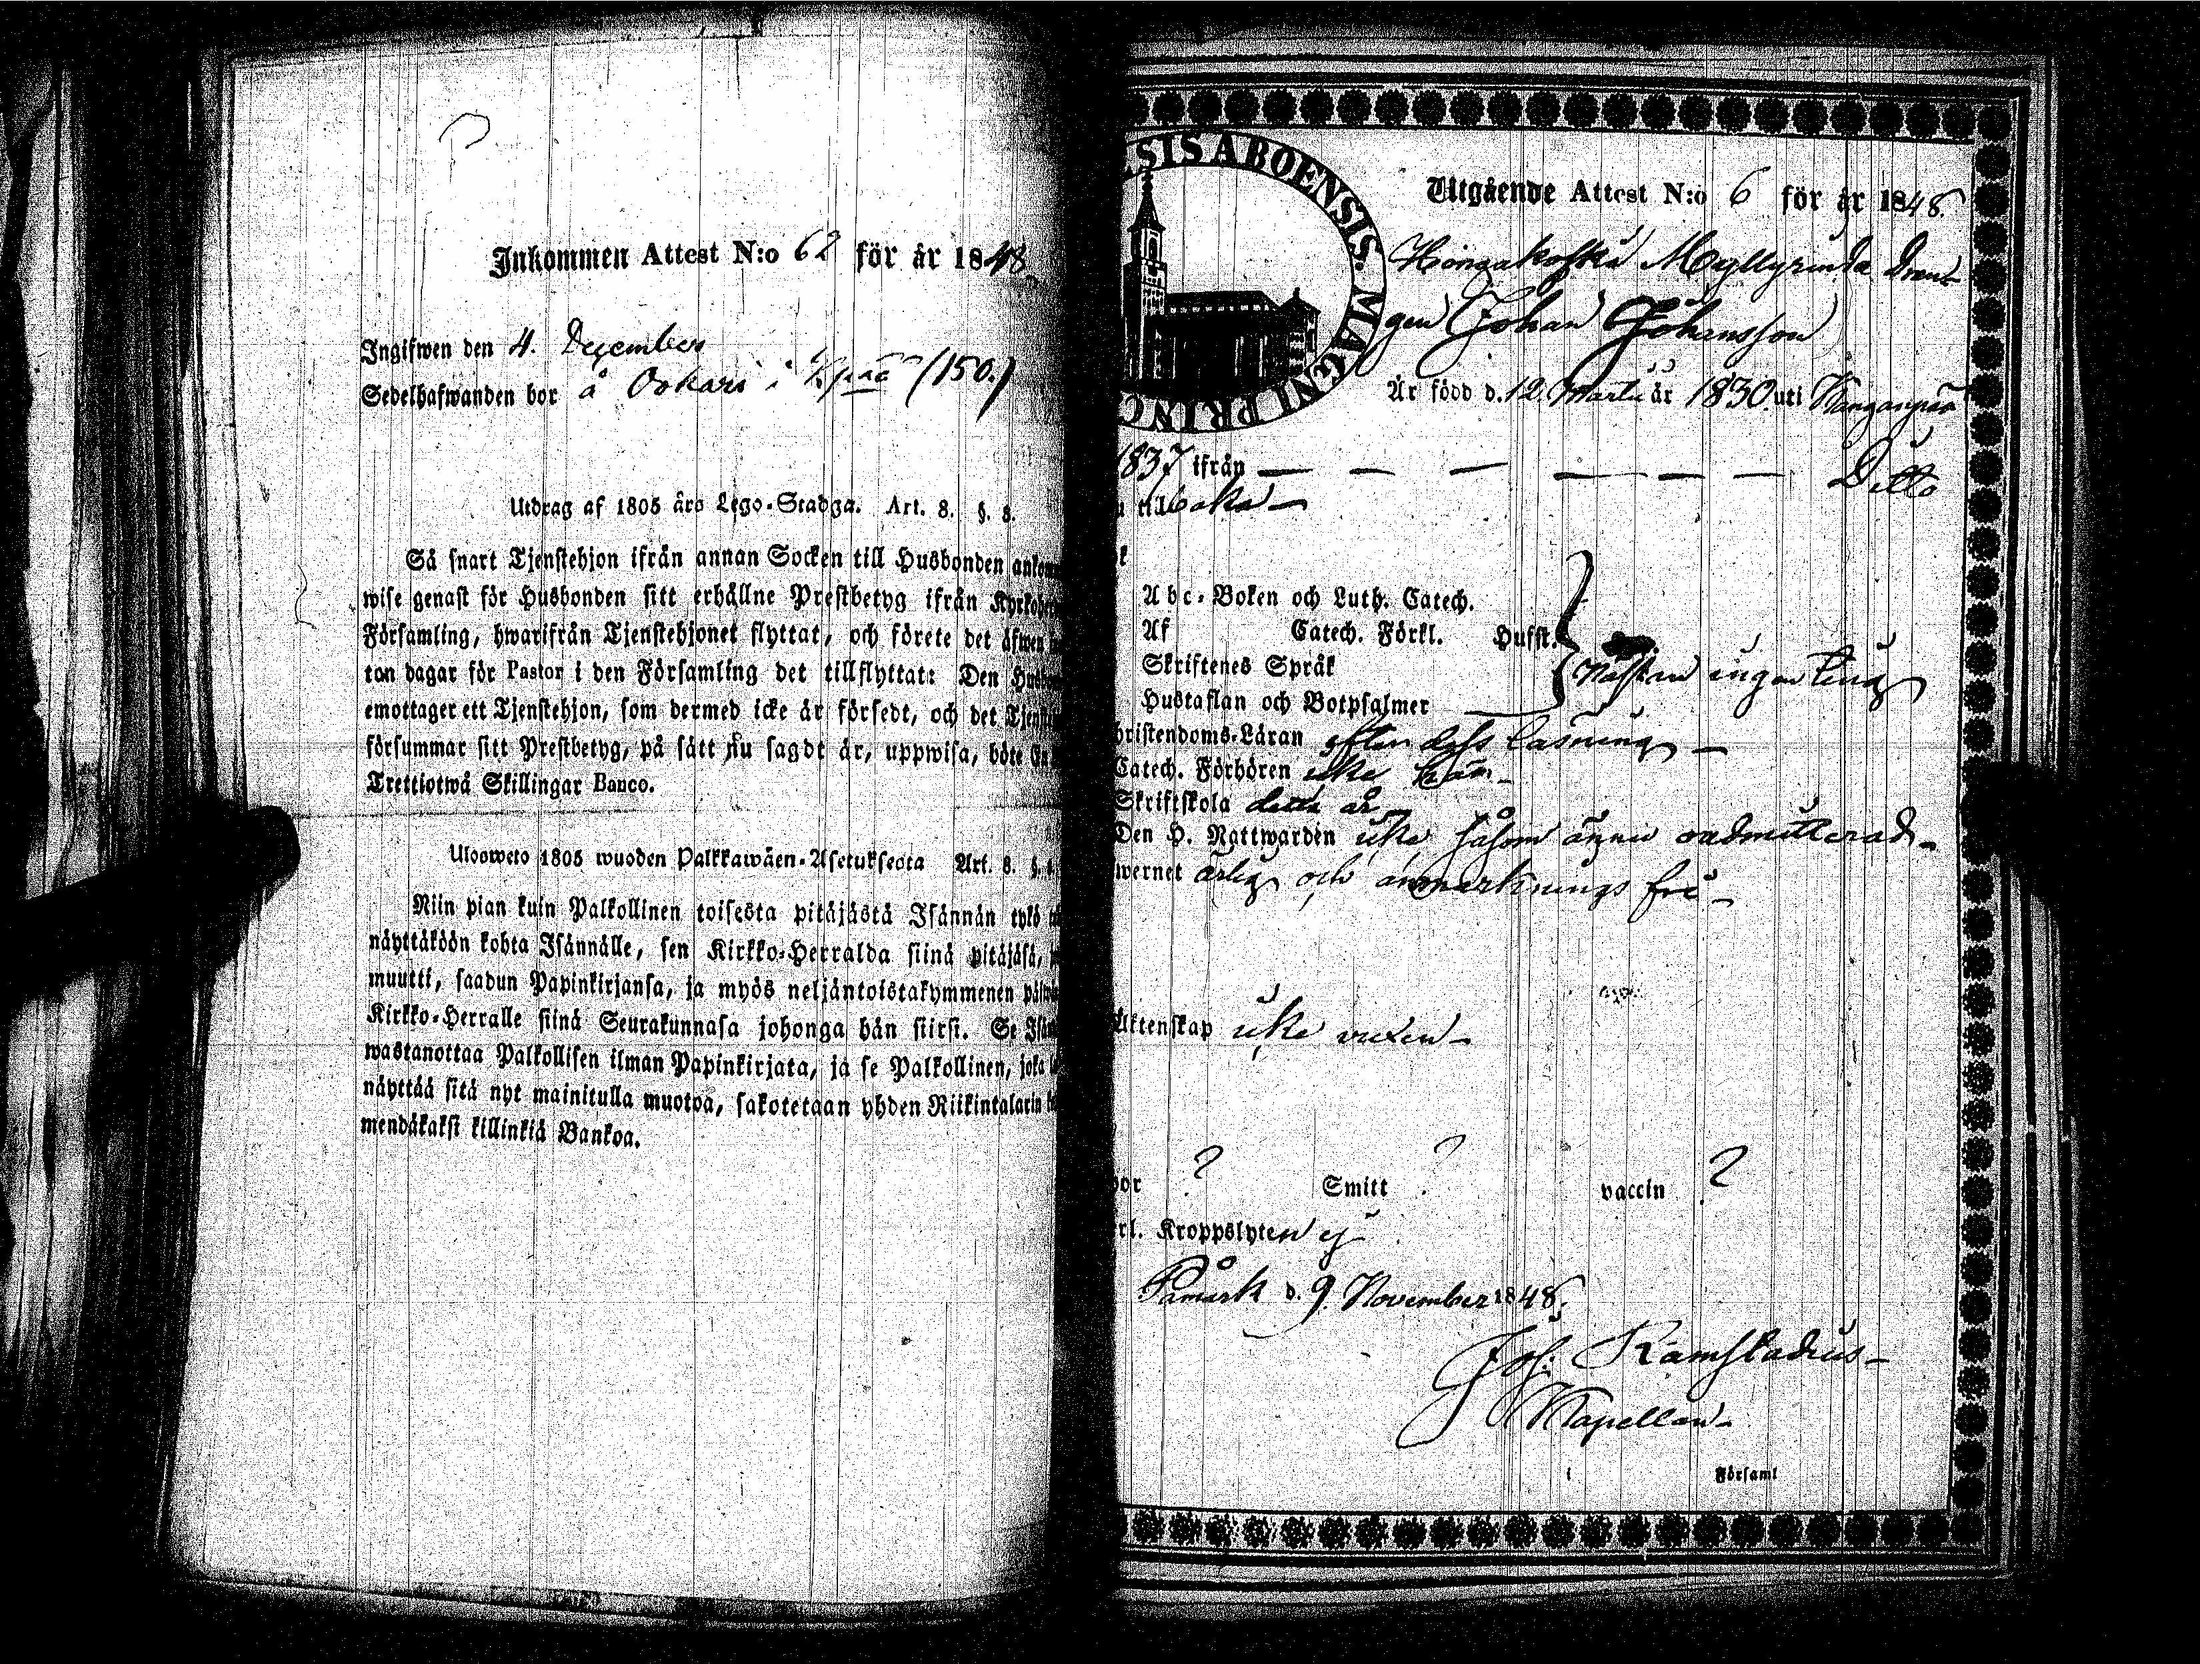 Inkommen Attest N:o 62 för år 1848
Ingifwen den 4. December
Sedelhafwanden bor å Oskari i (150.)
Utdrag af 1805 års Lego-Stadga. Art. 8. §. 8.
Så snart Tjenstehjon ifrån annan Socken till Husbonden
wise genast för Husbonden sitt erhållne Prestbetyg ifrån
Församling, hwarifrån Tjenstehjonet flyttat, och förete det äfwen
ton dagar för Pastor i den Församling det tillflyttat: Den
emottager ett Tjenstehjon, som dermed icke är försedt, och det
försummar sitt Prestbetyg, på sätt nu sagdt är, uppwisa, böte
Trettiotwå Skillingar Banco.
Ulosweto 1805 wuoden Palkkawäen-Asetuksesta Art. 8. §.
Niin pian kuin Palkollinen toisesta pitäjästä Isännän tykö
näyttäköön kohta Isännälle, sen Kirkko-Herralda siinä pitäjäsä,
muutti, saadun Papinkirjansa, ja myös neljäntoistakymmenen
Kirkko-Herralle siinä Seurakunnasa johonga hän siirsi. Se
wastanottaa Palkollisen ilman Papinkirjata, ja se Palkollinen, joka
näyttää sitä nyt mainitulla muotoa, sakotetaan yhden Riikintalarin
mendäkaksi killinkiä Bankoa.
SIS ABOENSIS. MAGNI PRINC
Utgående Attest N:o 6 för år 1848.
Hongakoski Myllyrinda Drän-
gen Johan Johansson
Är född d. 12 Martii år 1830 uti Kanganpää
1837 ifrån — — — — — — Ditto
till baka —
Abc-Boken och Luth. Catech.
Af Catech. Förkl. Husst.
Skriftenes Språk
Nästan ingen ting
Hustaflan och Botpsalmer
hristendoms-Läran efter dess läsning —
Catech. Förhören icke
Skriftskola detta år
Den H. Nattwarden icke såsom ännu oadmitterad —
wernet ärlig och anmärknings fri —
Äktenskap icke vuxen —
? Smitt ? vaccin ?
rl. Kroppslyten ej
Påmark d. 9. November 1848.
Joh: Ramstadius —
Kapellan —
i Församl